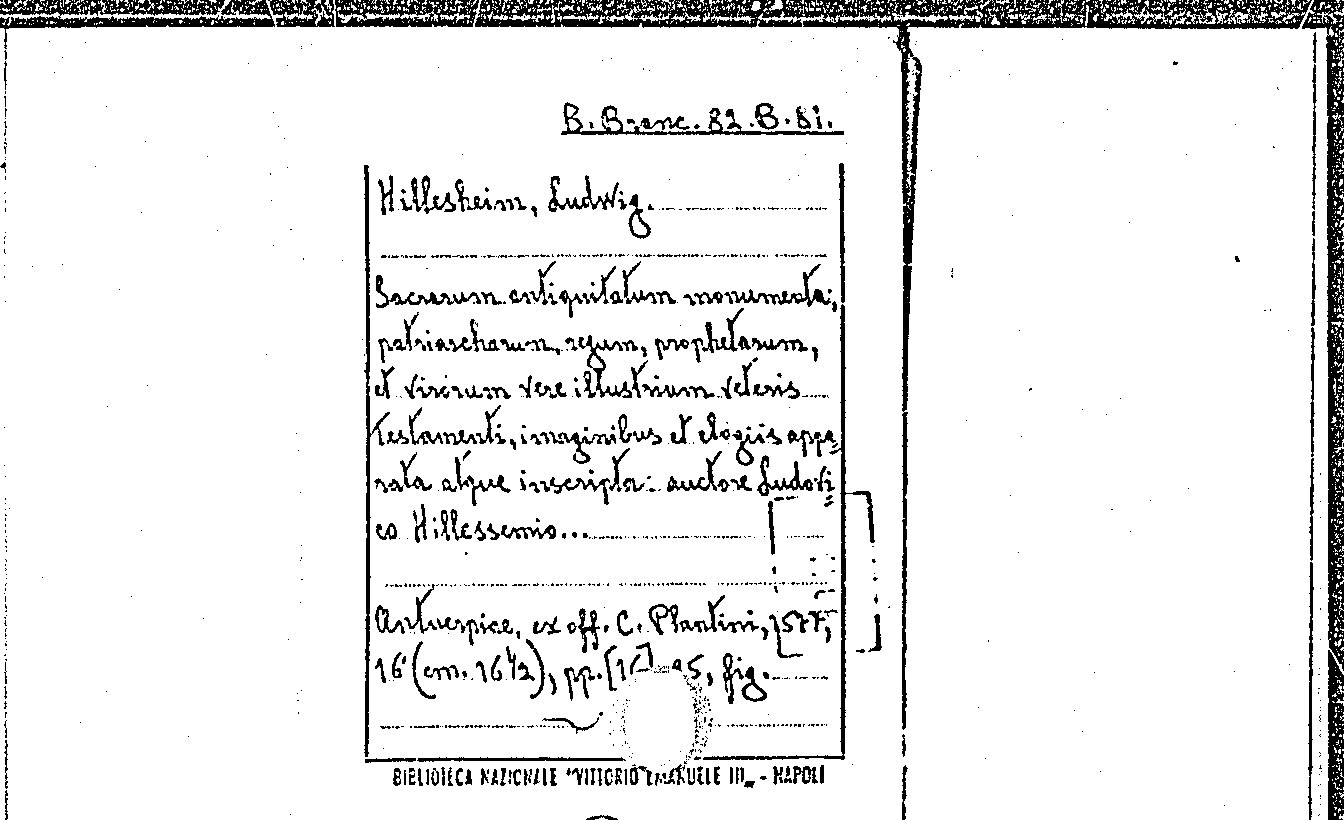 B. Branc. 82. B. 81.
Hillesheim, Ludwig.
Sacrarum antiquitatum monumenta;
patriascharum, regum, prophetarum,
et virorum vere illustrium veteris
testamenti, imaginibus et elogiis appa
rata atque inscripta: auctore Ludovi
co Hillessemio...
Antuerpiae, ex off. C. Plantini, 1577,
16° (cm. 16 1/2), pp. 95, fig.
BIBLIOTECA NAZIONALE "VITTORIO EMANUELE III„ - NAPOLI